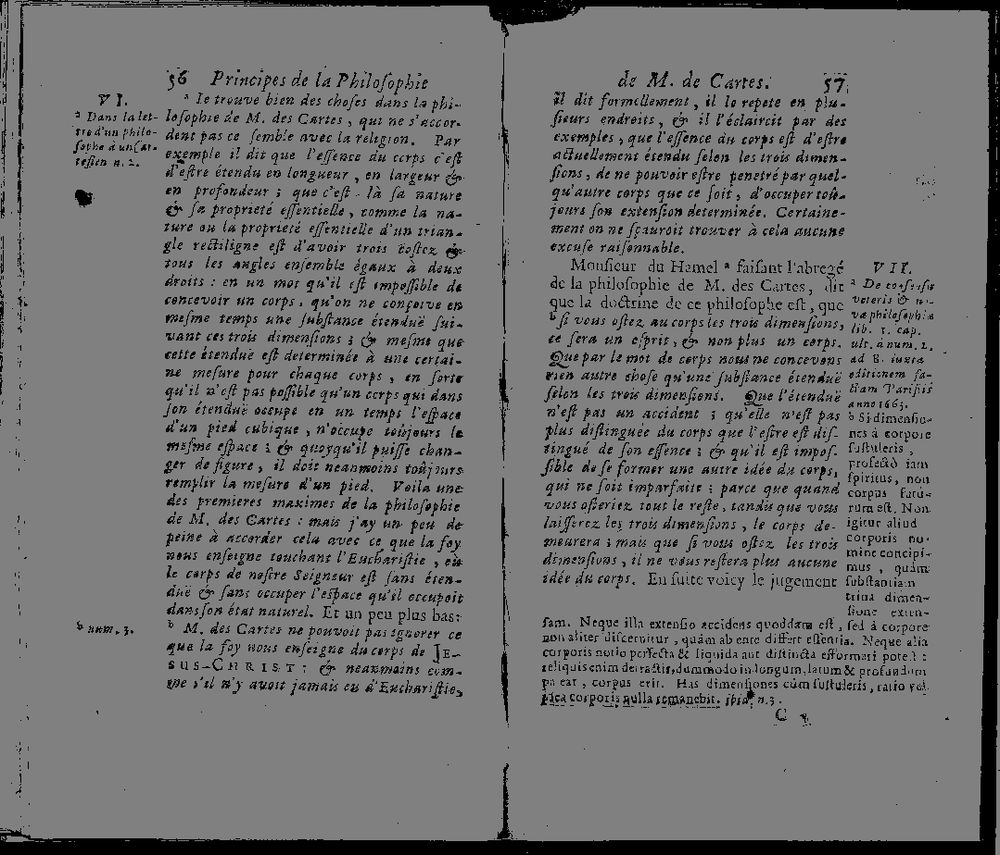 56 Principes de la Philosophie
VI.
ᵃ Dans la let-
tre d'un philo-
sophe à un Car-
tesien n. 2.
ᵃ Ie trouve bien des choses dans la phi-
losophie de M. des Cartes, qui ne s'accor-
dent pas ce semble avec la religion. Par
exemple il dit que l'essence du corps c'est
d'estre étendu en longueur, en largeur &
en profondeur ; que c'est là sa nature
& sa proprieté essentielle, comme la na-
ture ou la proprieté essentielle d'un trian-
gle rectiligne est d'avoir trois costez &
tous les angles ensemble égaux à deux
droits : en un mot qu'il est impossible de
concevoir un corps, qu'on ne conçoive en
mesme temps une substance étenduë sui-
vant ces trois dimensions ; & mesme que
cette étenduë est determinée à une certai-
ne mesure pour chaque corps, en sorte
qu'il n'est pas possible qu'un corps qui dans
son étenduë occupe en un temps l'espace
d'un pied cubique, n'occupe toûjours le
mesme espace ; & quoyqu'il puisse chan-
ger de figure, il doit neanmoins toûjours
remplir la mesure d'un pied. Voila une
des premieres maximes de la philosophie
de M. des Cartes : mais j'ay un peu de
peine à accorder cela avec ce que la foy
nous enseigne touchant l'Eucharistie, où
le corps de nostre Seigneur est sans éten-
duë & sans occuper l'espace qu'il occupoit
dans son état naturel. Et un peu plus bas:
ᵇ num. 3.
ᵇ M. des Cartes ne pouvoit pas ignorer ce
que la foy nous enseigne du corps de JE-
SUS-CHRIST : & neanmoins com-
me s'il n'y avoit jamais eu d'Eucharistie,
de M. de Cartes. 57
il dit formellement, il le repete en plu-
sieurs endroits, & il l'éclaircit par des
exemples, que l'essence du corps est d'estre
actuellement étendu selon les trois dimen-
sions, de ne pouvoir estre penetré par quel-
qu'autre corps que ce soit, d'occuper toû-
jours son extension determinée. Certaine-
ment on ne sçauroit trouver à cela aucune
excuse raisonnable.
Monsieur du Hamel ᵃ faisant l'abregé
de la philosophie de M. des Cartes, dit
que la doctrine de ce philosophe est, que
ᵇ si vous ostez au corps les trois dimensions,
ce sera un esprit, & non plus un corps.
Que par le mot de corps nous ne concevons
rien autre chose qu'une substance étenduë
selon les trois dimensions. Que l'étenduë
n'est pas un accident ; qu'elle n'est pas
plus distinguée du corps que l'estre est dis-
tingué de son essence ; & qu'il est impos-
sible de se former une autre idée du corps,
qui ne soit imparfaite ; parce que quand
vous osteriez tout le reste, tandis que vous
laisserez les trois dimensions, le corps de-
meurera ; mais que si vous ostez les trois
dimensions, il ne vous restera plus aucune
idée du corps. En suite voicy le jugement
VII.
ᵃ De consensu
veteris & no-
væ philosophiæ
lib. 1. cap.
ult. à num. 2.
ad 8. iuxta
editionem fa-
ctam Parisiis
anno 1663.
ᵇ Si dimensio-
nes à corpore
sustuleris,
profectò iam
spiritus, non
corpus futu-
rum est. Non
igitur aliud
corporis no-
mine concipi-
mus, quàm
substantiam
trina dimen-
sione exten-
sam. Neque illa extensio accidens quoddam est, sed à corpore
non aliter discernitur, quàm ab ente differt essentia. Neque alia
corporis notio perfecta & liquida aut distincta efformari potest :
reliquis enim detractis, dummodo in longum, latum & profundum
pateat, corpus erit. Has dimensiones cùm sustuleris, ratio
corporis nulla remanebit. ibid. n. 3.
C v